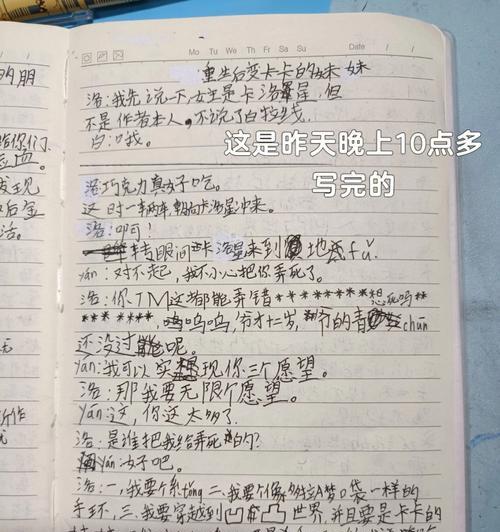 Mo Tu We Th Fr Sa Su Date / /
重生后变卡卡的妹妹
洛:我先说一下,女主是卡洛星,但
不是作者本人,不说了白拉戋
白:哦。
这是昨天晚上10点多
写完的
洛巧克力真好吃。
这时一辆车,朝向卡洛星冲来。
洛:啊!
转眼间卡洛星来到地fǔ.
yán:对不起,我不小心把你弄死了。
洛:你TM这都能弄错*******想死吗**
*******,呜呜呜,爷才十二岁,爷的青chūn
还没过呢。
Yán:我可以实现你三个愿望。
洛:那我要无限个愿望。
Yán:这,你这太多了.
洛:是谁把我给弄死的?
Yán:好吧。
洛:一,我要个系tǒng二、我要个像多拉A梦口袋一样的
手环,三、我要穿越到凹凸世界,并且要是卡卡的
的朋
给你们
发现
后金
活。